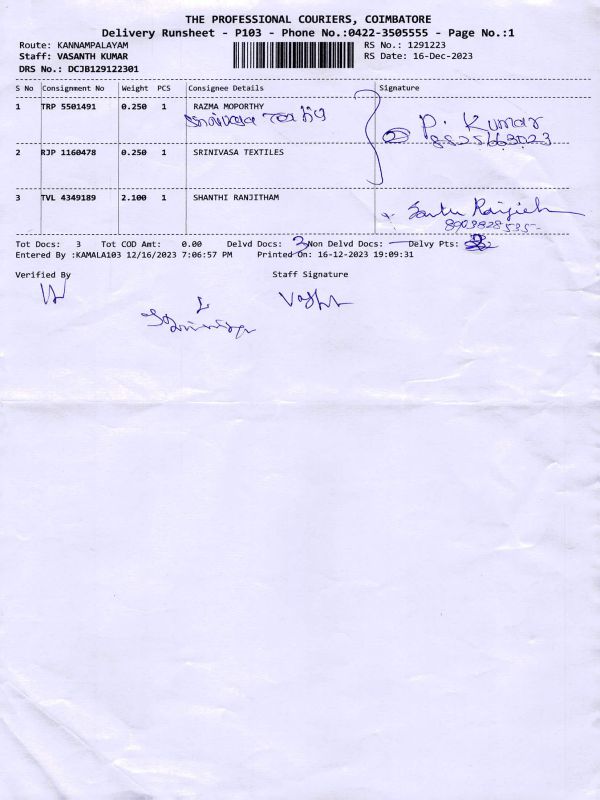 THE PROFESSIONAL COURIERS, COIMBATORE
Delivery Runsheet - P103 - Phone No.:0422-3505555 - Page No.:1
Route: KANNAMPALAYAM RS No.: 1291223
Staff: VASANTH KUMAR RS Date: 16-Dec-2023
DRS No.: DCJB129122301
S No Consignment No Weight PCS Consignee Details Signature
1 TRP 5501491 0.250 1 RAZMA MOPORTHY
P. Kumar
2 RJP 1160478 0.250 1 SRINIVASA TEXTILES
3 TVL 4349189 2.100 1 SHANTHI RANJITHAM
8903828535-
Tot Docs: 3 Tot COD Amt: 0.00 Delvd Docs: 3 Non Delvd Docs: — Delvy Pts:
Entered By :KAMALA103 12/16/2023 7:06:57 PM Printed On: 16-12-2023 19:09:31
Verified By Staff Signature